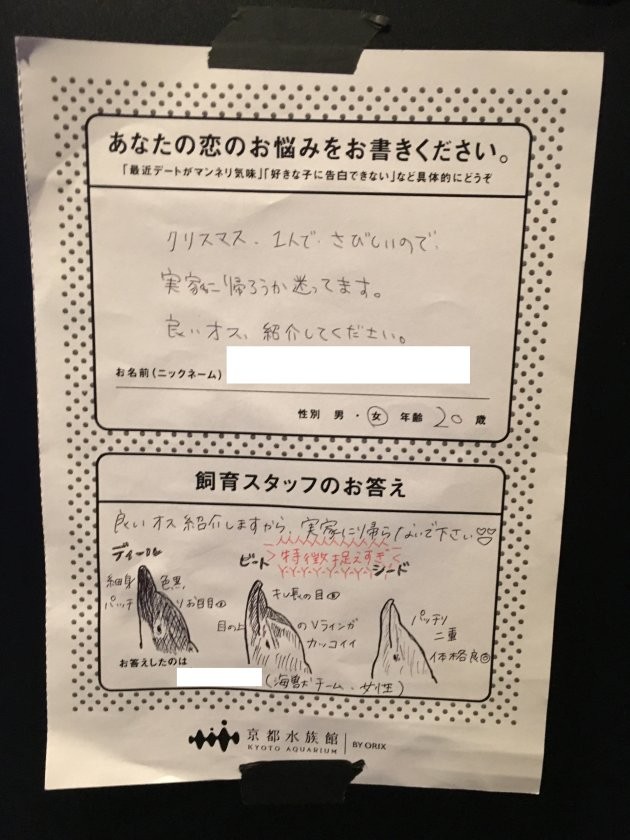 あなたの恋のお悩みをお書きください。
「最近デートがマンネリ気味」「好きな子に告白できない」など具体的にどうぞ
クリスマス、1人で、さびしいので、
実家に帰ろうか迷ってます。
良いオス、紹介してください。
お名前(ニックネーム)
性別 男・女 年齢 20 歳
飼育スタッフのお答え
良いオス紹介しますから、実家に帰らないで下さい
ディール
細身 色黒
パッチリお目目
ビート
特徴捉えすぎ
キレ長の目
目の上のVラインが
カッコイイ
シード
パッチリ
二重
体格良
お答えしたのは
(海獣チーム・女性)
京都水族館
KYOTO AQUARIUM
BY ORIX